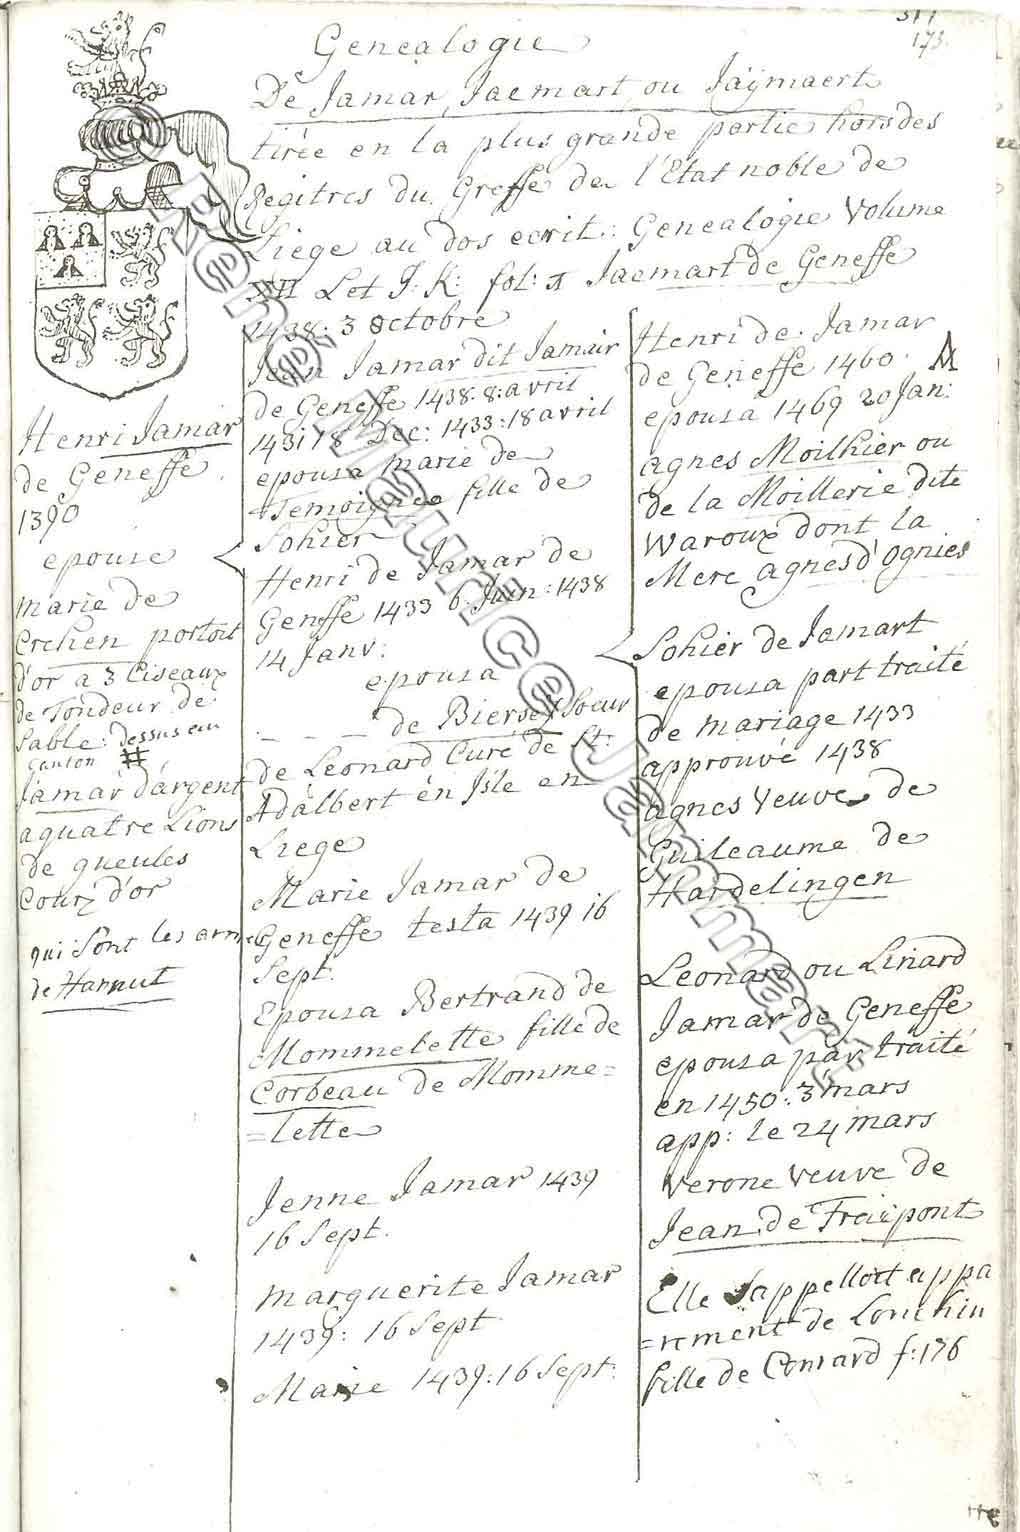 173.
Genealogie
De Jamar, Jaemart, ou Jaÿmaert
tirée en la plus grande partie hors des
Regitres du Greffe de l'Etat noble de
Liege au dos ecrit: Genealogie Volume
XII Let J: K: fol: 1 Jaemart de Geneffe
Henri Jamar
de Geneffe
1390
epouse
Marie de
Crehen portoit
d'or a 3 Ciseaux
de Tondeur de
Sable: dessus em
Canton #
Jamar d'argent
a quatre Lions
de gueules
Cour: d'or
qui sont les armes
de Hannut
1438: 3 octobre
Jean Jamar dit Jamair
de Geneffe 1438: 8: avril
1431 18 Dec: 1433: 18 avril
epousa Marie de
Temoignée fille de
Sohier
Henri de Jamar de
Genffe 1433 6 Juin: 1438
14 Janv:
epousa
_ _ _ _ de Bierset Soeur
de Leonard Curé de St:
Adalbert en Isle en
Liege
Marie Jamar de
Geneffe testa 1439 16
Sept:
Epousa Bertrand de
Mommelette fille de
Corbeau de Momme=
=lette
Jenne Jamar 1439
16 Sept.
Marguerite Jamar
1439: 16 Sept
Marie 1439: 16 Sept:
Henri de Jamar
de Geneffe 1460
epousa 1469 20 Jan:
agnes Moilhier ou
de la Moillerie dite
Waroux dont la
Mere agnes d'Ognies
Sohier de Jamart
epousa part traité
de mariage 1433
approuvé 1438
agnes Veuve de
Guileaume de
Hardelingen
Leonard ou Linard
Jamar de Geneffe
epousa par traité
en 1450: 3 mars
app: le 24 mars
Verone Veuve de
Jean de Fraipont
Elle s'appelloit appa
=rement de Lonchin
fille de Conrard f: 176
© René Maurice Jammart